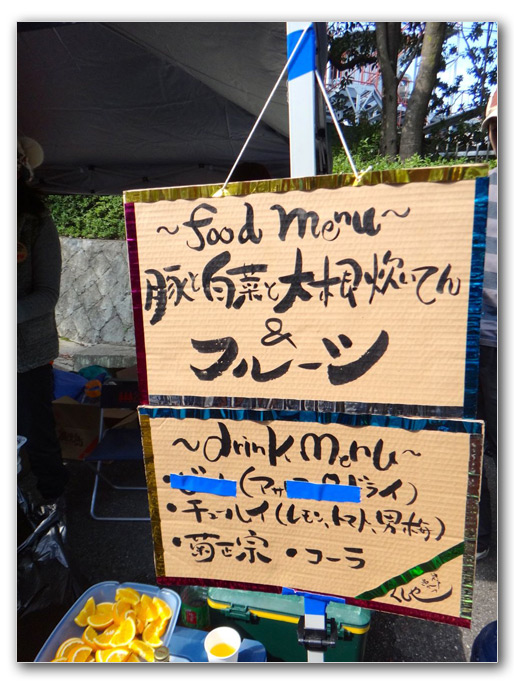 ～food menu～
豚と白菜と大根炊いてん
&
フルーツ
～drink menu～
・ビール(アサ ドライ)
・チューハイ(レモン、トマト、男梅)
・菊正宗 ・コーラ
くしや